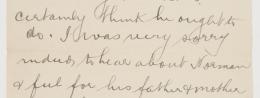 certainly think he ought to
do. I was very sorry
indeed, to hear about Norman
& feel for his father & mother